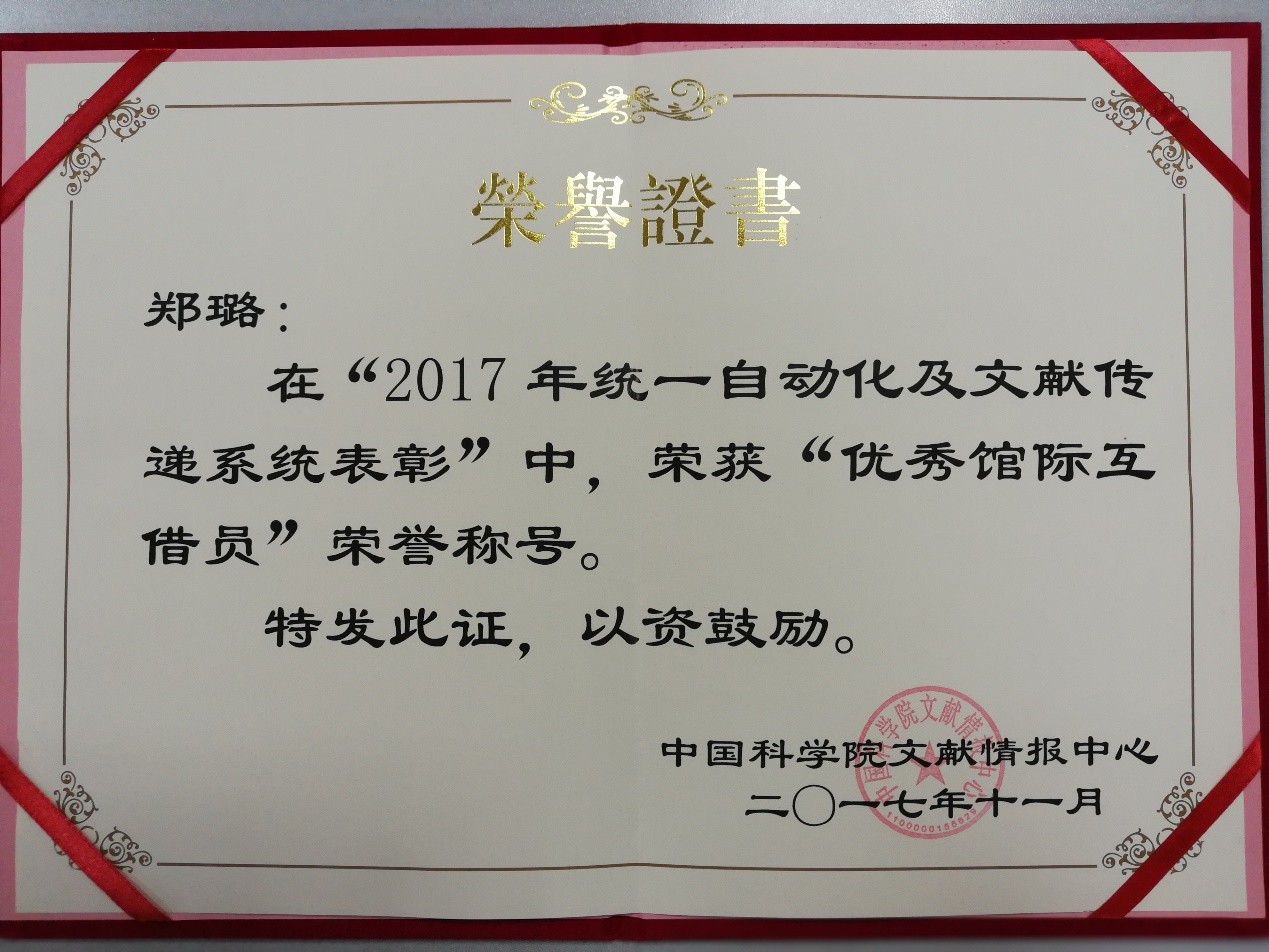 榮譽證書
郑璐：
在“2017 年统一自动化及文献传
递系统表彰”中，荣获“优秀馆际互
借员”荣誉称号。
特发此证，以资鼓励。
中国科学院文献情报中心
二〇一七年十一月
中国科学院文献情报中心